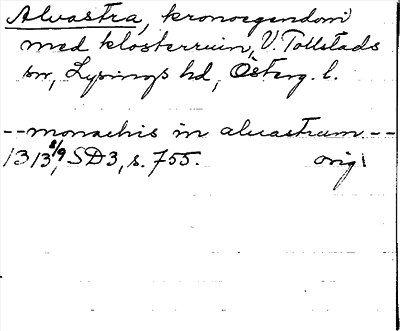 Alvastra, kronoegendom
med klosterruin, V. Tollstads
sn, Lysings hd, Österg. l.
-- monachis in aluastrum --
1313 8/9, SD3, s. 755. orig